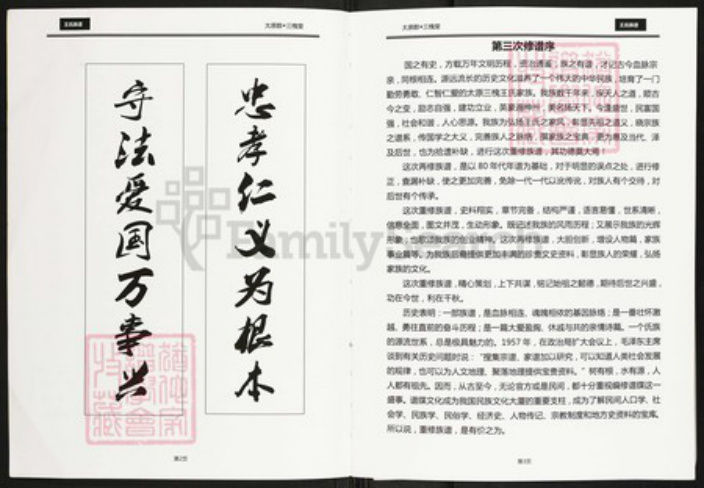 王氏族谱
太原郡•三槐堂
忠孝仁义为根本
守法爱国万事兴
第2页
太原郡•三槐堂
王氏族谱
第三次修谱序
国之有史，方载万年文明历程，资治通鉴，族之有谱，才记古今血脉宗
亲，同根相连。源远流长的历史文化滋养了一个伟大的中华民族，培育了一门
勤劳勇敢、仁智仁爱的太原三槐王氏家族。我族数千年来，探天人之道，顺古
今之变，励志自强，建功立业，英豪遍神州，美名扬天下。今逢盛世，民富国
强，社会和谐，人心思源。我族为弘扬王氏之家风，彰显先祖之道义，晓宗族
之谱系，传国学之大义，完善族人之脉络，撰家族之宝典，更为惠及当代、泽
及后世，也为拾遗补缺，进行这次重修族谱，其功德莫大焉！
这次再修族谱，是以 80 年代年谱为基础，对于明显的误点之处，进行修
正，查漏补缺，使之更加完善，免除一代一代以讹传讹，对族人有个交待，对
后世有个传承。
这次重修族谱，史料翔实，章节完善，结构严谨，语言易懂，世系清晰，
信息全面，图文并茂，生动形象。既记述我族的风雨历程；又展示我族的光辉
形象；也歌颂我族的创业精神。这次再修族谱，大胆创新，增设人物篇，家族
事业篇等。为我族后裔提供更加丰满的珍贵文史资料，彰显族人的荣耀，弘扬
家族的文化。
这次重修族谱，精心策划，上下共谋，铭记始祖之懿德，期待后世之兴盛，
功在今世，利在千秋。
历史表明：一部族谱，是血脉相连、魂魄相依的基因脉络；是一番壮怀激
越、勇往直前的奋斗历程；是一篇大爱盈胸、休戚与共的亲情诗篇。一个氏族
的源流世系，总是极具魅力的。1957 年，在政治局扩大会议上，毛泽东主席
谈到有关历史问题时说：“搜集宗谱、家谱加以研究，可以知道人类社会发展
的规律，也可以为人文地理、聚落地理提供宝贵资料。”树有根，水有源，人
人都有祖先。因而，从古至今，无论官方或是民间，都十分重视编修谱牒这一
盛事。谱牒文化成为我国民族文化大厦的重要支柱，成为了解民间人口学、社
会学、民族学、民俗学、经济史、人物传记、宗教制度和地方史资料的宝库。
所以说，重修族谱，是有价之为。
第3页
FamilySearch